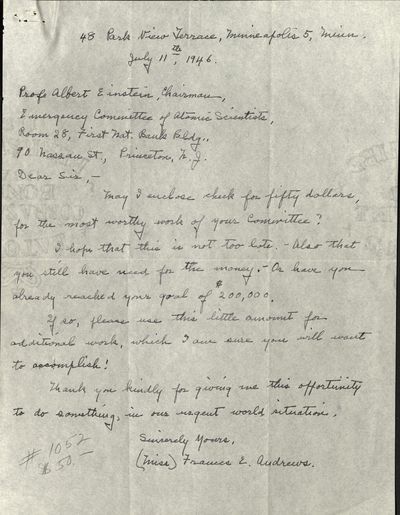 48 Park View Terrace, Minneapolis 5, Minn.
July 11th, 1946.
Prof. Albert Einstein, Chairman,
Emergency Committee of Atomic Scientists,
Room 28, First Nat. Bank Bldg.,
90 Nassau St., Princeton, N. J.
Dear Sir, —
May I enclose check for fifty dollars,
for the most worthy work of your Committee?
I hope that this is not too late. - Also that
you still have need for the money. - Or have you
already reached your goal of $200,000.
If so, please use this little amount for
additional work, which I am sure you will want
to accomplish!
Thank you kindly for giving me this opportunity
to do something, in our urgent world situation.
Sincerely Yours,
(Miss) Frances E. Andrews.
# 1052
$50.—